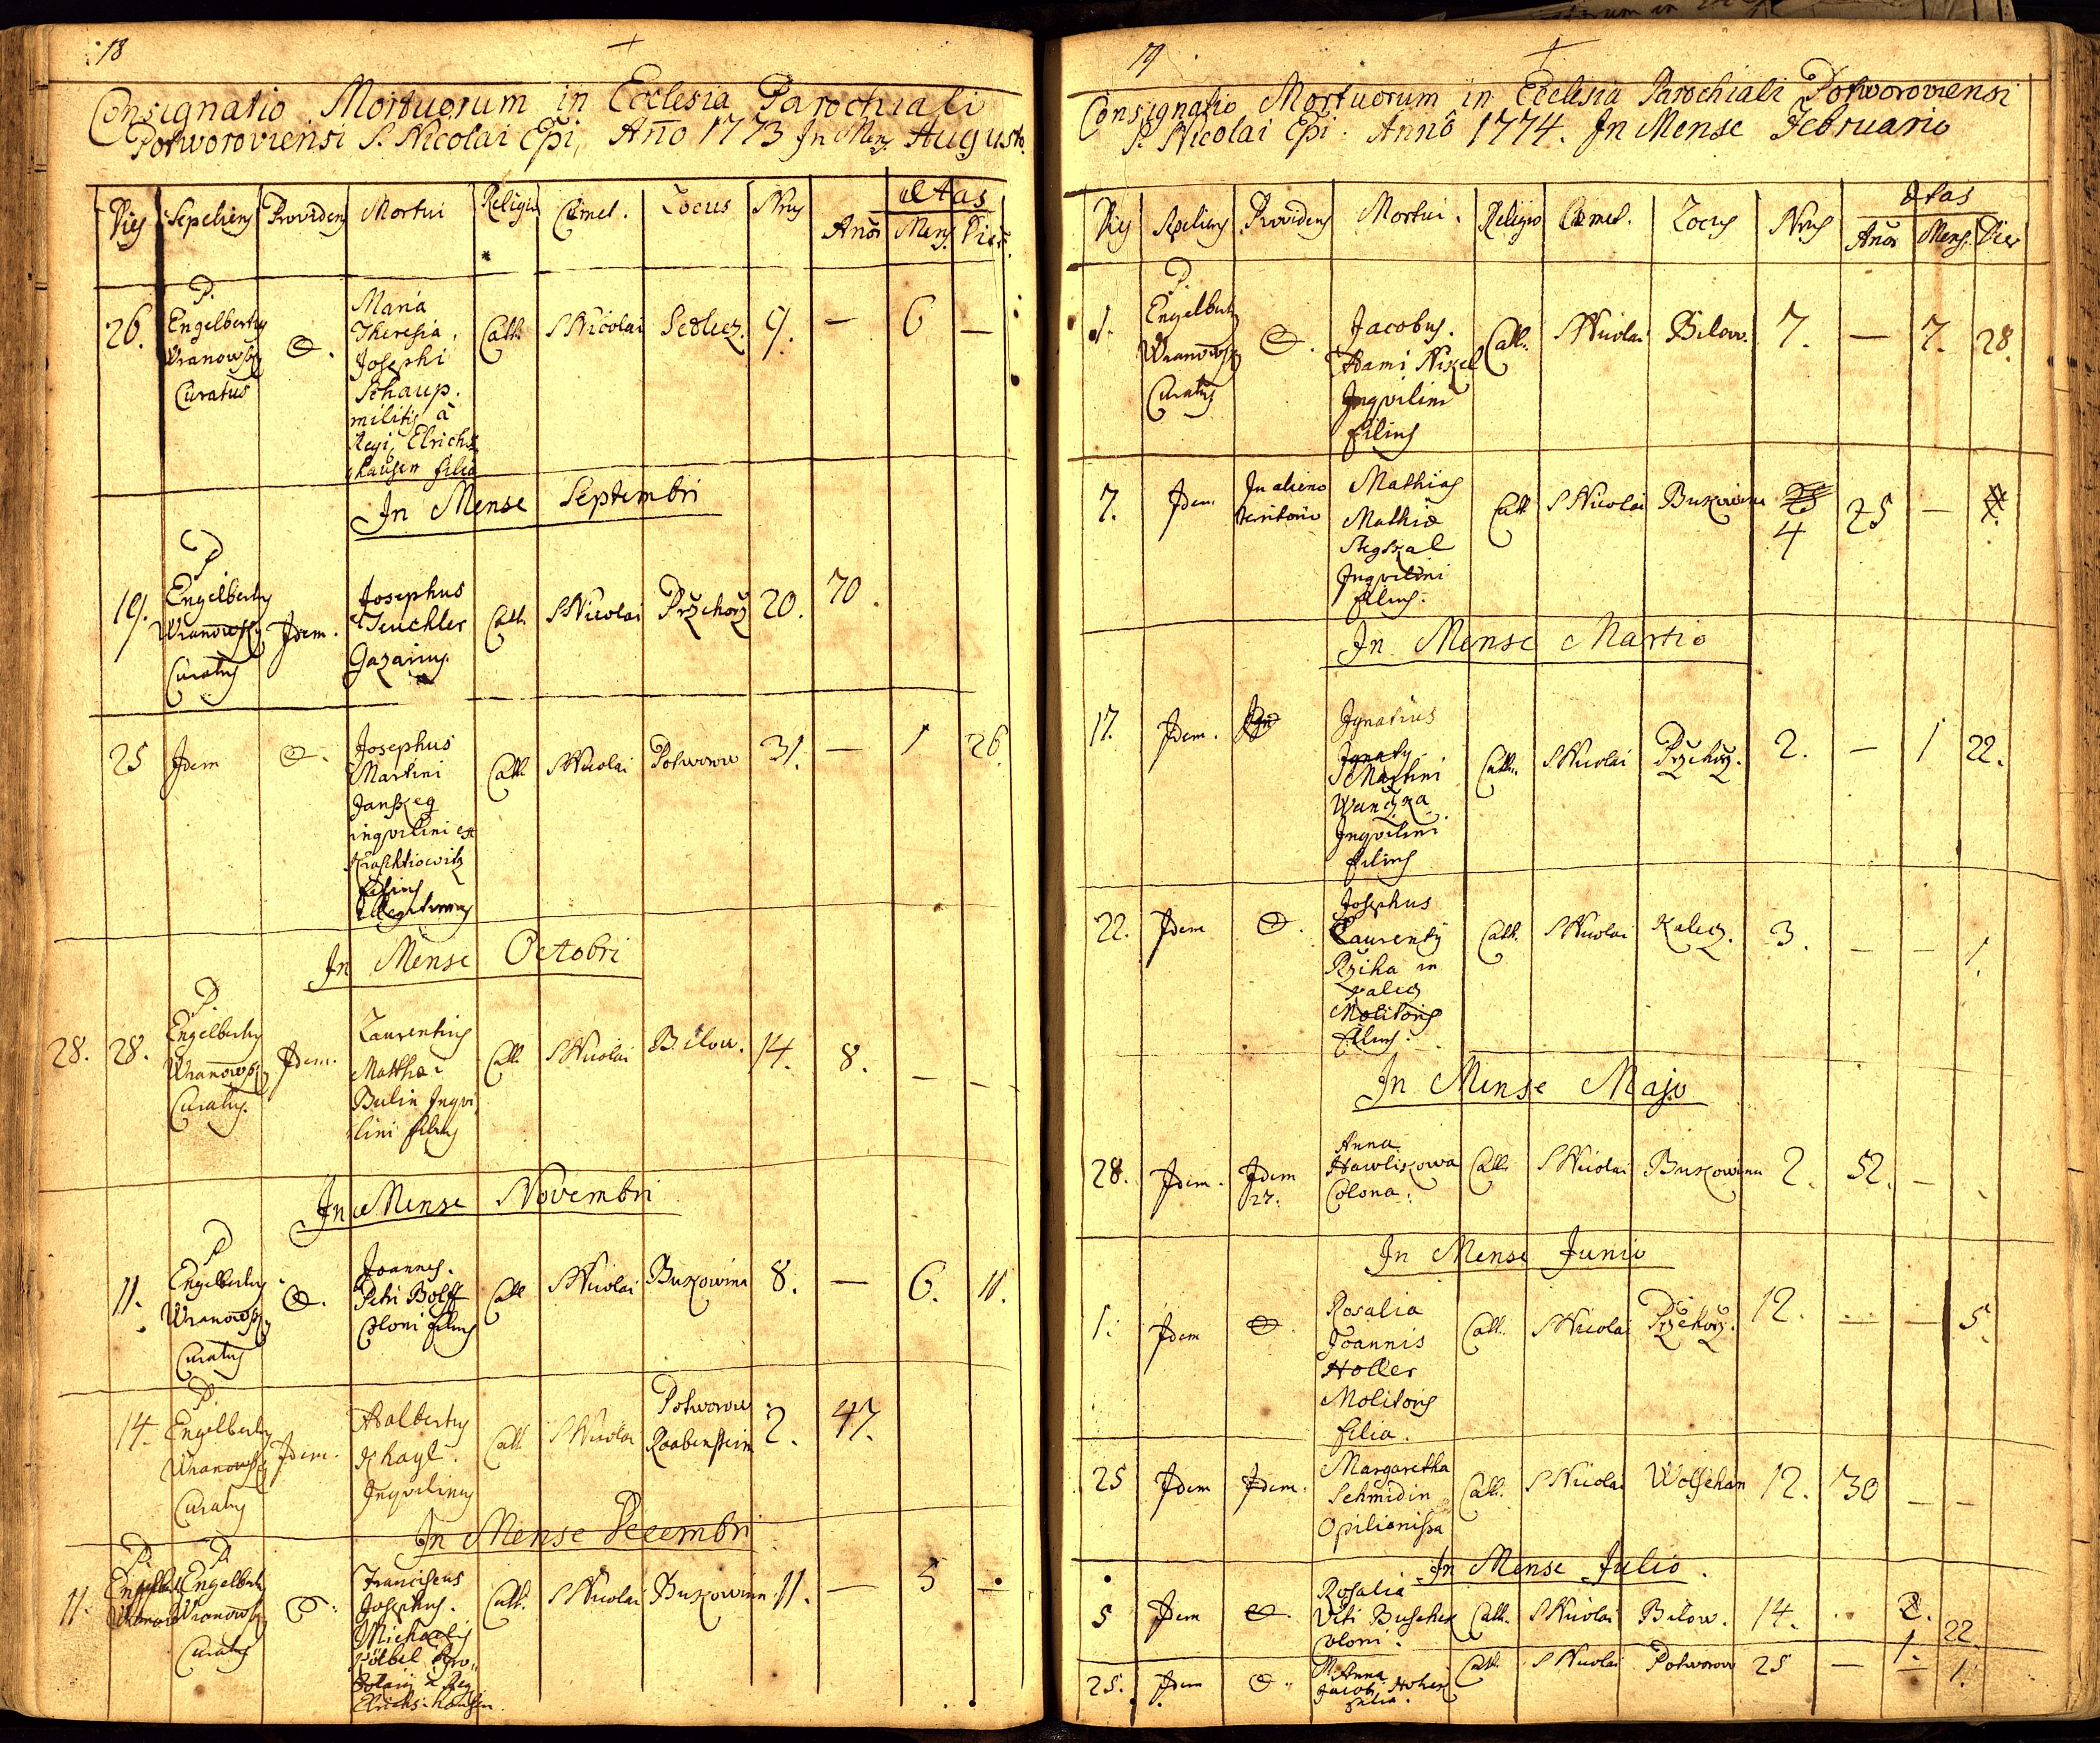 18
Consignatio Mortuorum in Ecclesia Parochiali
Potworoviensi S. Nicolai Epi, Año 1773 In Mens Augusto.
Dies Sepeliens Providens Mortui Religio Cœmet. Locus Nrus Ætas
Añor Mens Dier
26. P. Engelbertus Wranowsky Curatus
Maria
Theresia
Josephi
Schaup.
militis à
Regi Elrichs
hausen filia
Cath. S Nicolai Sedlecz. 9. — 6 —
In Mense Septembri
19. P. Engelbertus Wranowsky Curatus Idem.
Josephus
Teuchler
Gazarius
Cath. S Nicolai Przchorz 20. 70.
25 Idem
Josephus
Martini
ingvilini ex
filius
illegitimus
Cath. S Nicolai Potworow 31. — 1 26
In Mense Octobri
28. 28. P. Engelbertus Wranowsky Curatus. Idem.
Laurentius
Matthæi
Bulin Ingvi
lini filius
Cath. S Nicolai Bilow. 14. 8. — —
In Mense Novembri
11. P Engelbertus Wranowsky Curatus
Joannes.
Petri Bolff
Coloni filius
Cath S Nicolai Bukowina 8. — 6. 11.
14. P. Engelbertus Wranowsky Curatus Idem.
Adalbertus
Ingvilinus
Cath. S Nicolai Potworow
Raabenstein 2. 47.
In Mense Decembri
11. P. Engelbertus Wranowsky Curatus
Franciscus
Josephus.
Michaelis
Kölbel
à Reg
Elrichshausen
Cath. S Nicolai Bukowina 11. — 5 —
19
Consignatio Mortuorum in Ecclesia Parochiali Potworoviensi
S. Nicolai Epi. Annô 1774. In Mense Februario
Dies Sepeliens Providens Mortui. Religio Cœmet. Locus Nrus Ætas
Añor Mens. Dier
1. P. Engelbertus Wranowsky Curatus
Jacobus.
Adami Nikel
Ingvilini
filius
Cath. S Nicolai Bilow. 7. — 7. 28.
7. Idem In alieno
territorio
Mathias
Mathiæ
Ingvilini
filius.
Cath S Nicolai Bukowina 4 25 —
In Mense Martio
17. Idem.
Ignatius
Martini
Ingvilini
filius
Cath. S Nicolai Przchorz. 2. — 1 22.
22. Idem
Josephus
Laurentij
Rziha in
Kalecz
Molitoris
filius.
Cath. S Nicolai Kalecz. 3. — — 1.
In Mense Majo
28. Idem. Idem
27.
Anna
Hawlikowa
Colona.
Cath. S Nicolai Bukowina 2. 52. —
In Mense Junio
1. Idem
Rosalia
Joannis
Holler
Molitoris
filia.
Cath. S Nicolai Przchorz. 12. — — 5.
25 Idem Idem.
Margaretha
Schmidin
Opilionissa
Cath. S Nicolai Wolschan 12. 30 — —
In Mense Julio.
5 Idem
Rosalia
Viti Buschek
coloni.
Cath. S Nicolai Bilow. 14. 2. 22.
25. Idem
M. Anna
Jacobi
filia.
Cath. S Nicolai Potworow 25 — 1.